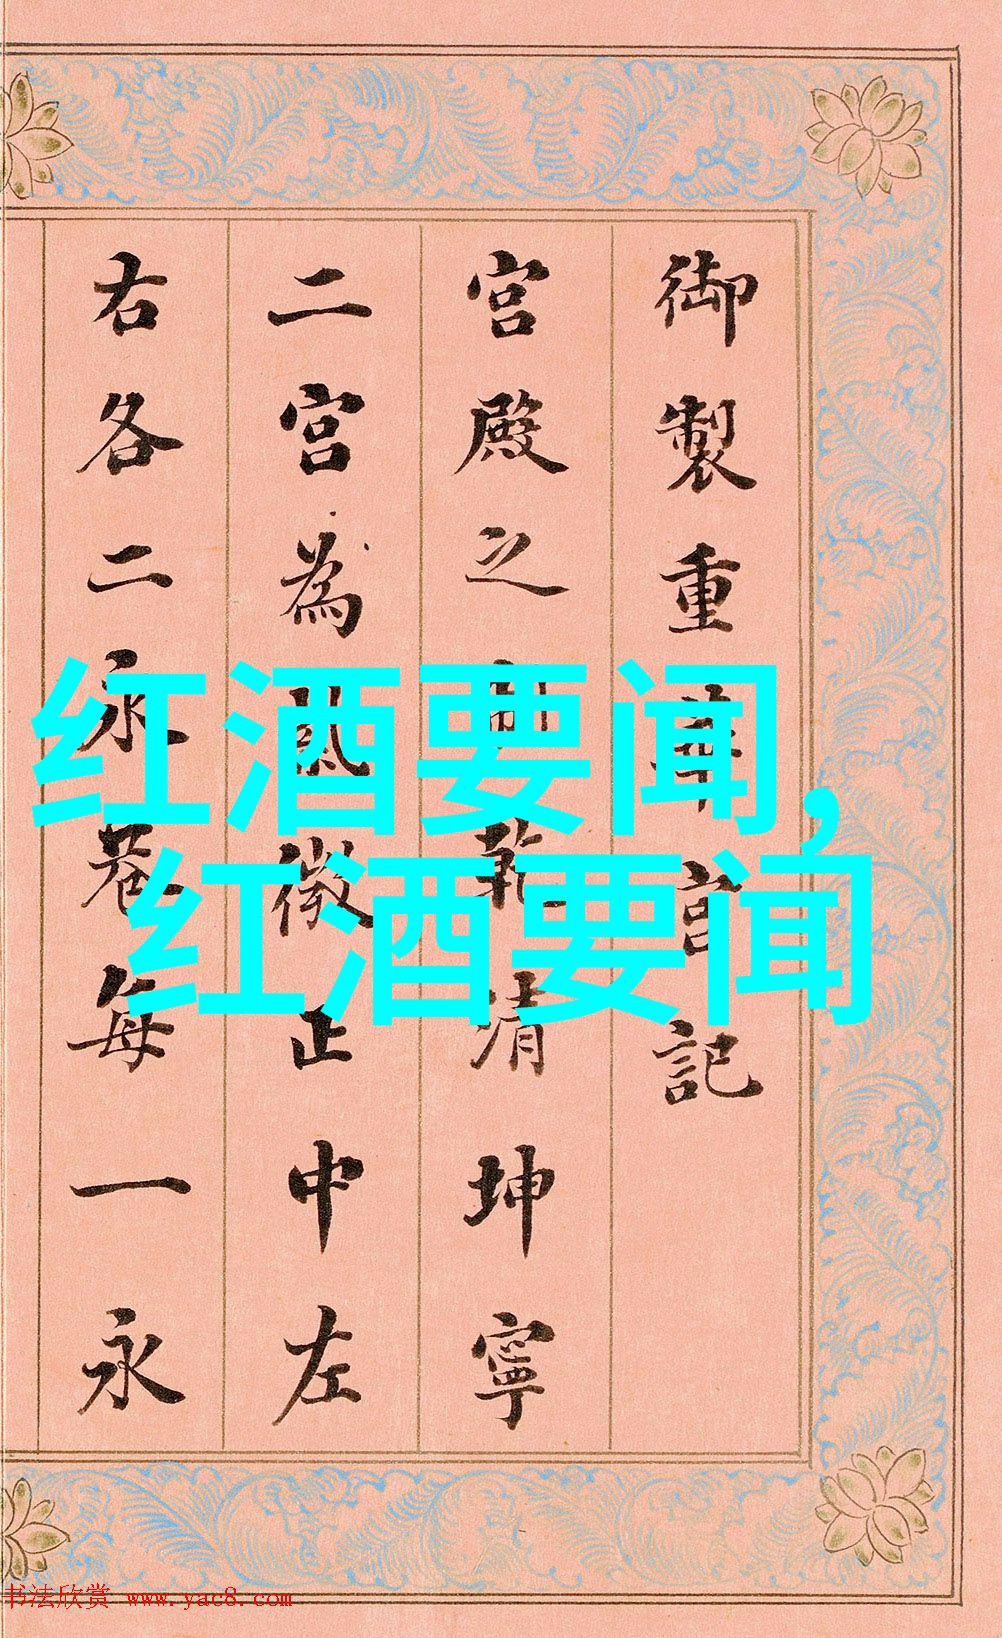 御製重華宮記
宮殿之制乾清坤寧
二宮為紫微正中左
右各二永巷每一永
红酒要闻,
红酒要闻
书法欣赏 www.yac8.com